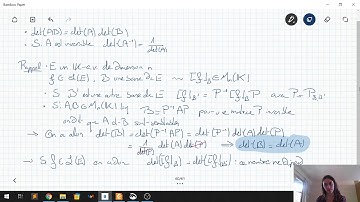 • det(AB) = det(A) det(B)
• Si A est inversible det(A⁻¹) = 1/det(A)
Rappel : E un K-ev de dimension n
f ∈ L(E), B une base de E → [f]_B ∈ M_n(K)
Si B' est une autre base de E [f]_B' = P⁻¹ [f]_B P avec P = P_B,B'
Si A, B ∈ M_n(K) B = P⁻¹AP pour une matrice P inversible
on dit que A et B sont semblables
→ On a alors det(B) = det(P⁻¹AP) = det(P⁻¹) det(A) det(P)
= 1/det(P) det(A) det(P) ⟹ det(B) = det(A)
→ Si f ∈ L(E) on a donc det([f]_B) = det([f]_B') ce nombre ne dépend